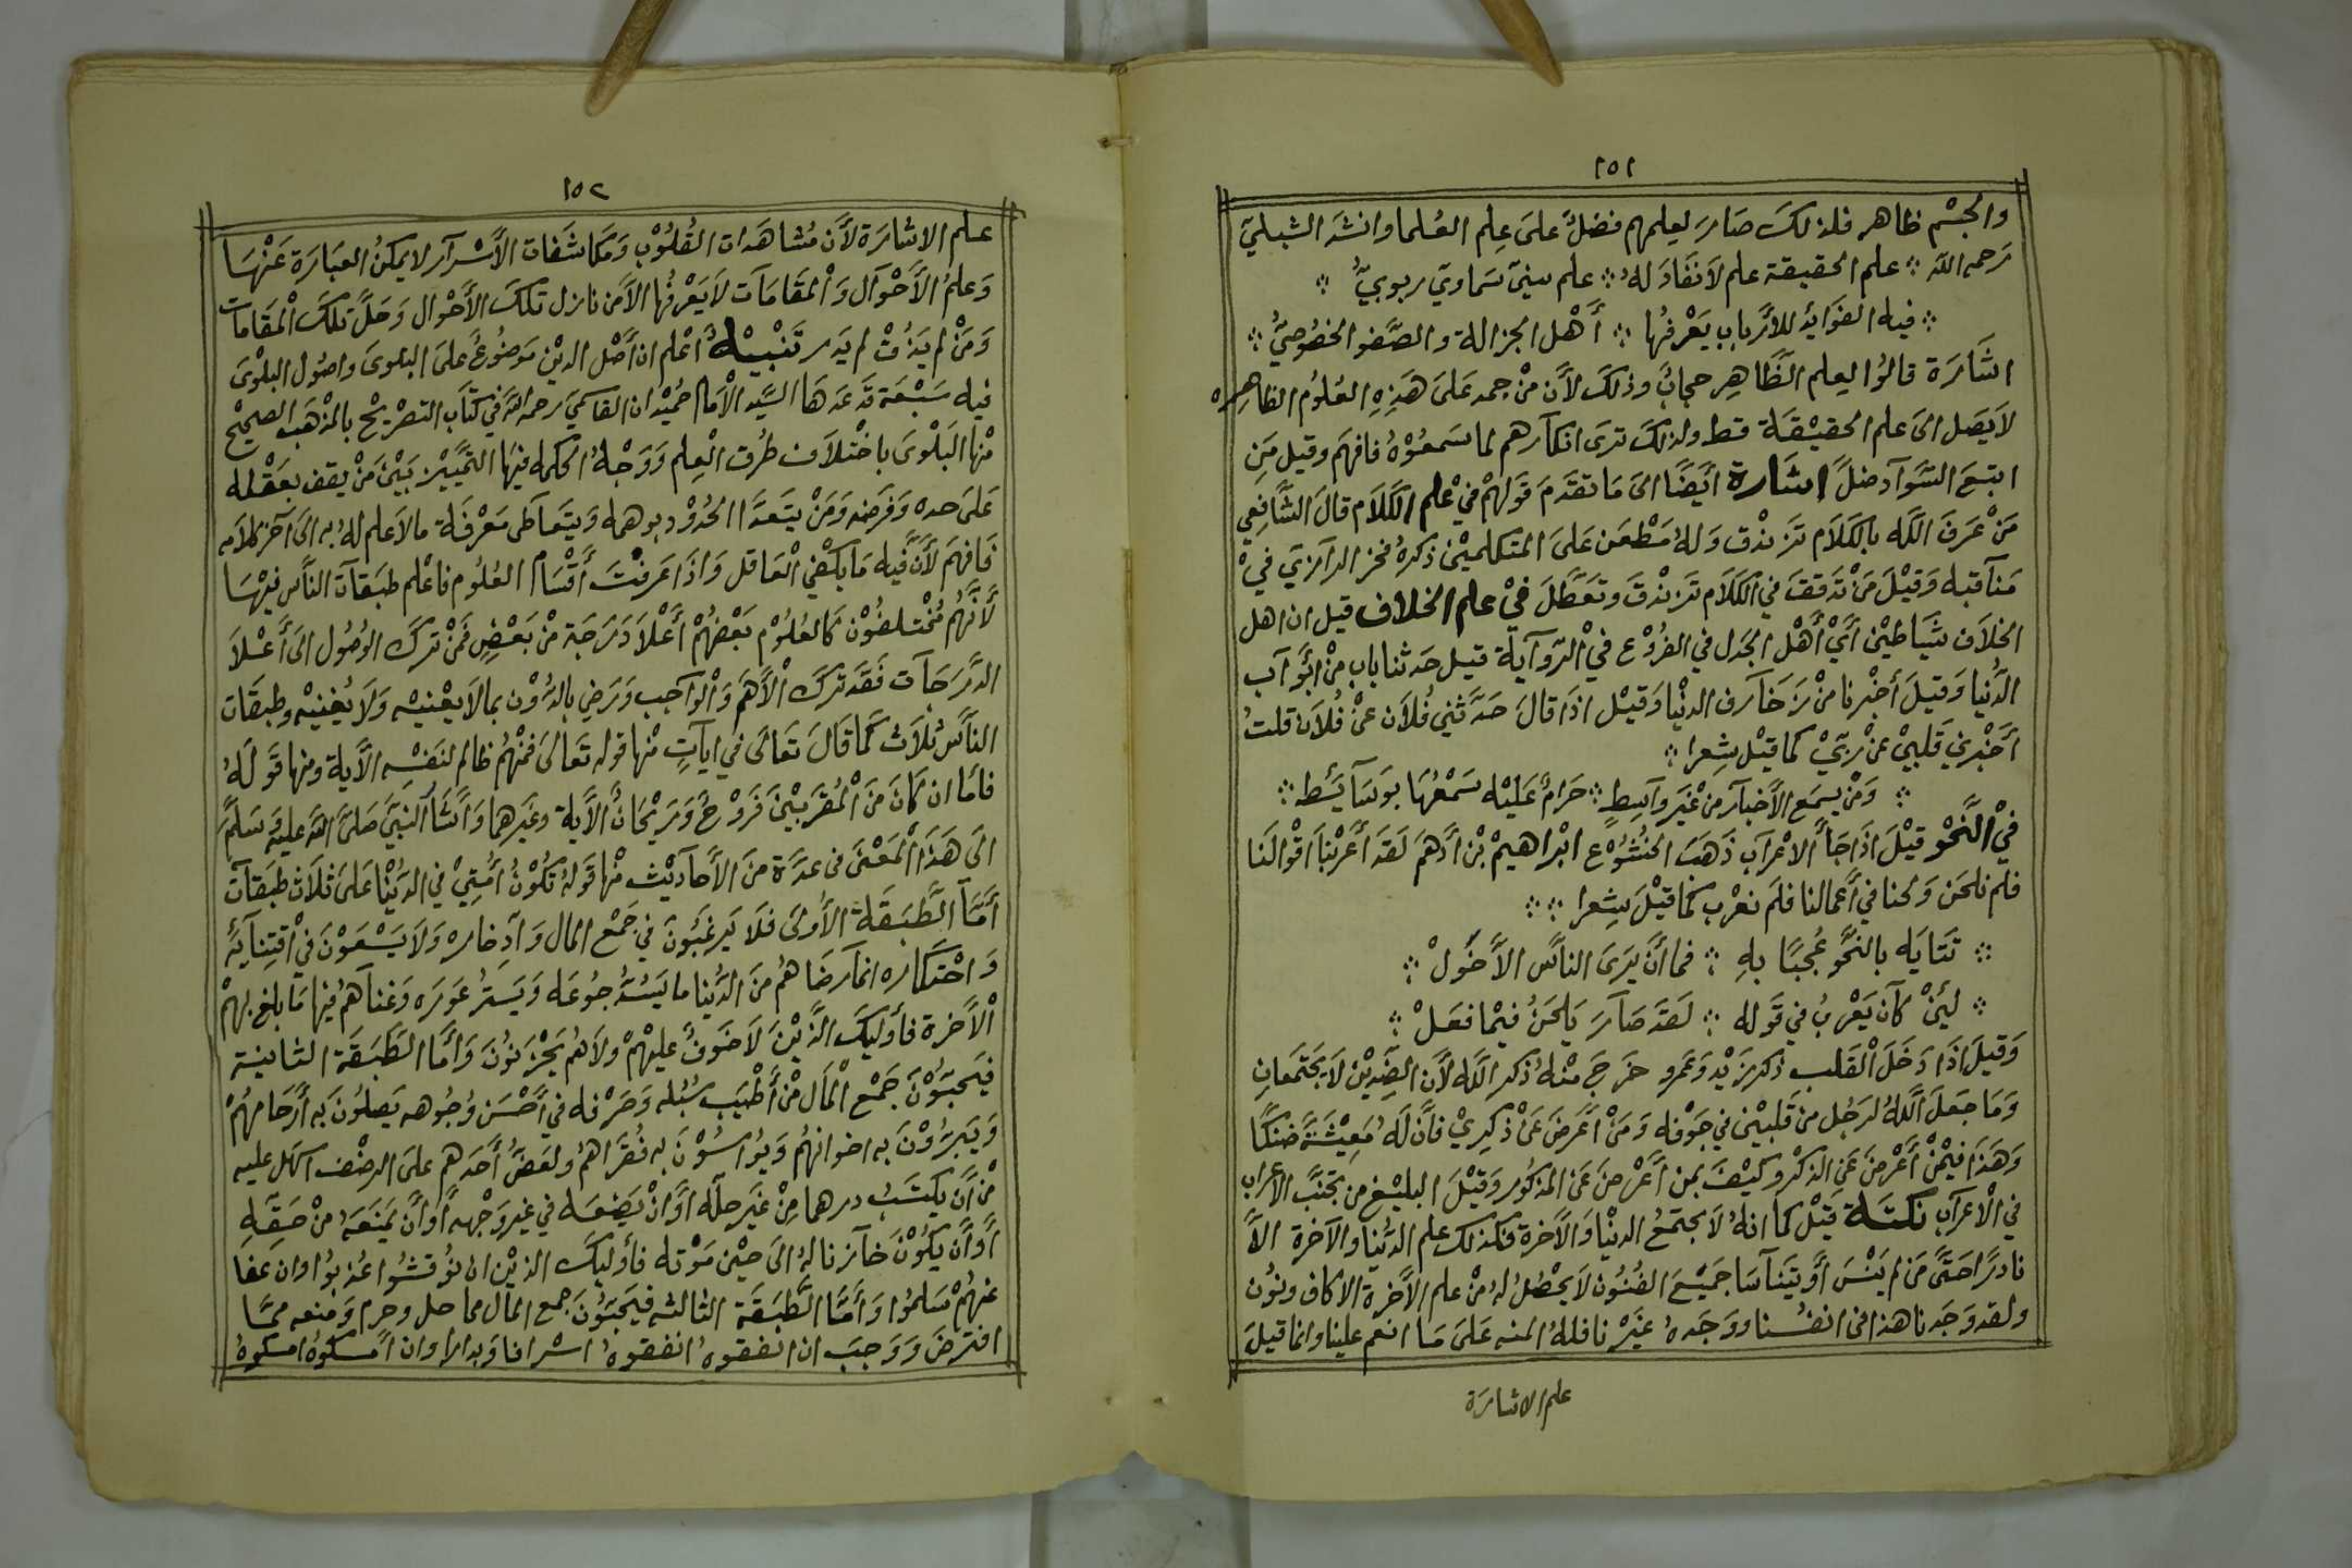 ١٥١
والجسم ظاهر فلذلك صار لعلمهم فضلٌ على علم العلما وانشد الشبلي
رحمه الله ؞ علم الحقيقة علم لا نفاد له ؞ علم سنيّ سماويّ ربوبيّ ؞
؞ فيه الفوائد للأرباب يعرفها ؞ أهل الجزالة والصفو الخصوصيّ ؞
اشارة قالوا العلم الظاهر حجاب وذلك لأن من جمد على هذه العلوم الظاهره
لا يصل الى علم الحقيقة قط ولذلك ترى انكارهم لما سمعوه فافهم وقيل من
اتبع السواد ضل اشارة أيضا الى ما تقدم قولهم في علم الكلام قال الشافعي
من عرف الله بالكلام تزندق وله مطعن على المتكلمين ذكره فخر الرازي في
مناقبه وقيل من تدقق في الكلام تزندق وتعطل في علم الخلاف قيل ان اهل
الخلاف شياطين أي أهل الجدل في الفروع في الرواية قيل حدثنا باب من ابواب
الدنيا وقيل أخبرنا من زخارف الدنيا وقيل اذا قال حدثني فلان عن فلان قلت
أخبرني قلبي عن ربي كما قيل شعرا ؞
؞ ومن يسمع الأخبار من غير واسطٍ ؞ حرام عليه سمعها بوسائطه ؞
في النحو قيل اذا جاء الاعراب ذهب الخشوع ابراهيم بن أدهم لقد أعربنا اقوالنا
فلم نلحن ولحنا في أعمالنا فلم نعرب كما قيل شعرا ؞ ؞
؞ تتايه بالنحو عجبا به ؞ فما أن يرى الناس الأخول ؞
؞ لئن كان يعرب في قوله ؞ لقد صار يلحن فيما فعل ؞
وقيل اذا دخل القلب ذكر زيد وعمرو خرج منه ذكر الله لأن الضدين لا يجتمعان
وما جعل الله لرجل من قلبين في جوفه ومن أعرض عن ذكري فان له معيشة ضنكا
وهذا فيمن أعرض عن الذكر وكيف بمن أعرض عن المذكور وقيل البليغ من تجنب الاعراب
في الاعراب نكتة قيل كما انه لا يجتمع الدنيا والآخرة فكذلك علم الدنيا والآخرة الا
نادرا حتى من لم ينس أو يتناسا جميع الفنون لا يحصل له من علم الآخرة الا كاف ونون
ولقد وجدنا هذا في انفسنا ووجده غيرنا فلله المنه على ما انعم علينا وانما قيل
علم الاشارة
١٥٢
علم الاشارة لأن مشاهدات القلوب ومكاشفات الأسرار لا يمكن العبارة عنها
وعلم الأحوال والمقامات لا يعرفها الا من نازل تلك الأحوال وحل تلك المقامات
ومن لم يذق لم يدر تنبيه أعلم ان أصل الدين موضوع على البلوى واصول البلوى
فيه سبعة قد عدها السيد الامام حميدان القاسمي رحمه الله في كتاب التصريح بالمذهب الصحيح
منها البلوى باختلاف طرق العلم ووجه الحكمه فيها التمييز بين من يقف بعقله
على حده وفرضه ومن يتعدا الحدود بوهمه ويتعاطى معرفة ما لا علم له به الى آخر كلامه
فافهم لأن فيه ما يكفي العاقل واذا عرفت أقسام العلوم فاعلم طبقات الناس فيها
لأنهم مختلفون كالعلوم بعضهم أعلا درجة من بعض فمن ترك الوصول الى أعلا
الدرجات فقد ترك الأهم والواجب ورضي بالدون بما لا يعنيه ولا يغنيه وطبقات
الناس ثلاث كما قال تعالى في ايات منها قوله تعالى فمنهم ظالم لنفسه الآية ومنها قوله
فاما ان كان من المقربين فروح وريحان الآية وغيرهما واشا النبي صلى الله عليه وسلم
الى هذا المعنى في عدة من الأحاديث منها قوله تكون أمتي في الدنيا على ثلاث طبقات
أما الطبقة الأولى فلا يرغبون في جمع المال وادخاره ولا يسعون في اقتنايه
واحتكاره انما رضاهم من الدنيا ما يسد جوعه ويستر عوره وغناهم فيها ما بلغ بهم
الآخرة فأوليك الذين لا خوف عليهم ولا هم يحزنون وأما الطبقة الثانية
فيحبون جمع المال من أطيب سبله وصرفه في أحسن وجوهه يصلون به أرحامهم
ويبرون به اخوانهم ويواسون به فقراهم ولعض أحدهم على الرضف اسهل عليه
من أن يكتسب درهما من غير حله أو ان يضعه في غير وجهه أو أن يمنعه من حقه
أو أن يكون خازنا له الى حين موته فأوليك الذين ان نوقشوا عذبوا وان عفا
عنهم سلموا وأما الطبقة الثالثه فيحبون جمع المال مما حل وحرم ومنعه مما
افترض ووجب ان انفقوه انفقوه اسرافا وبدارا وان امسكوه امسكوه